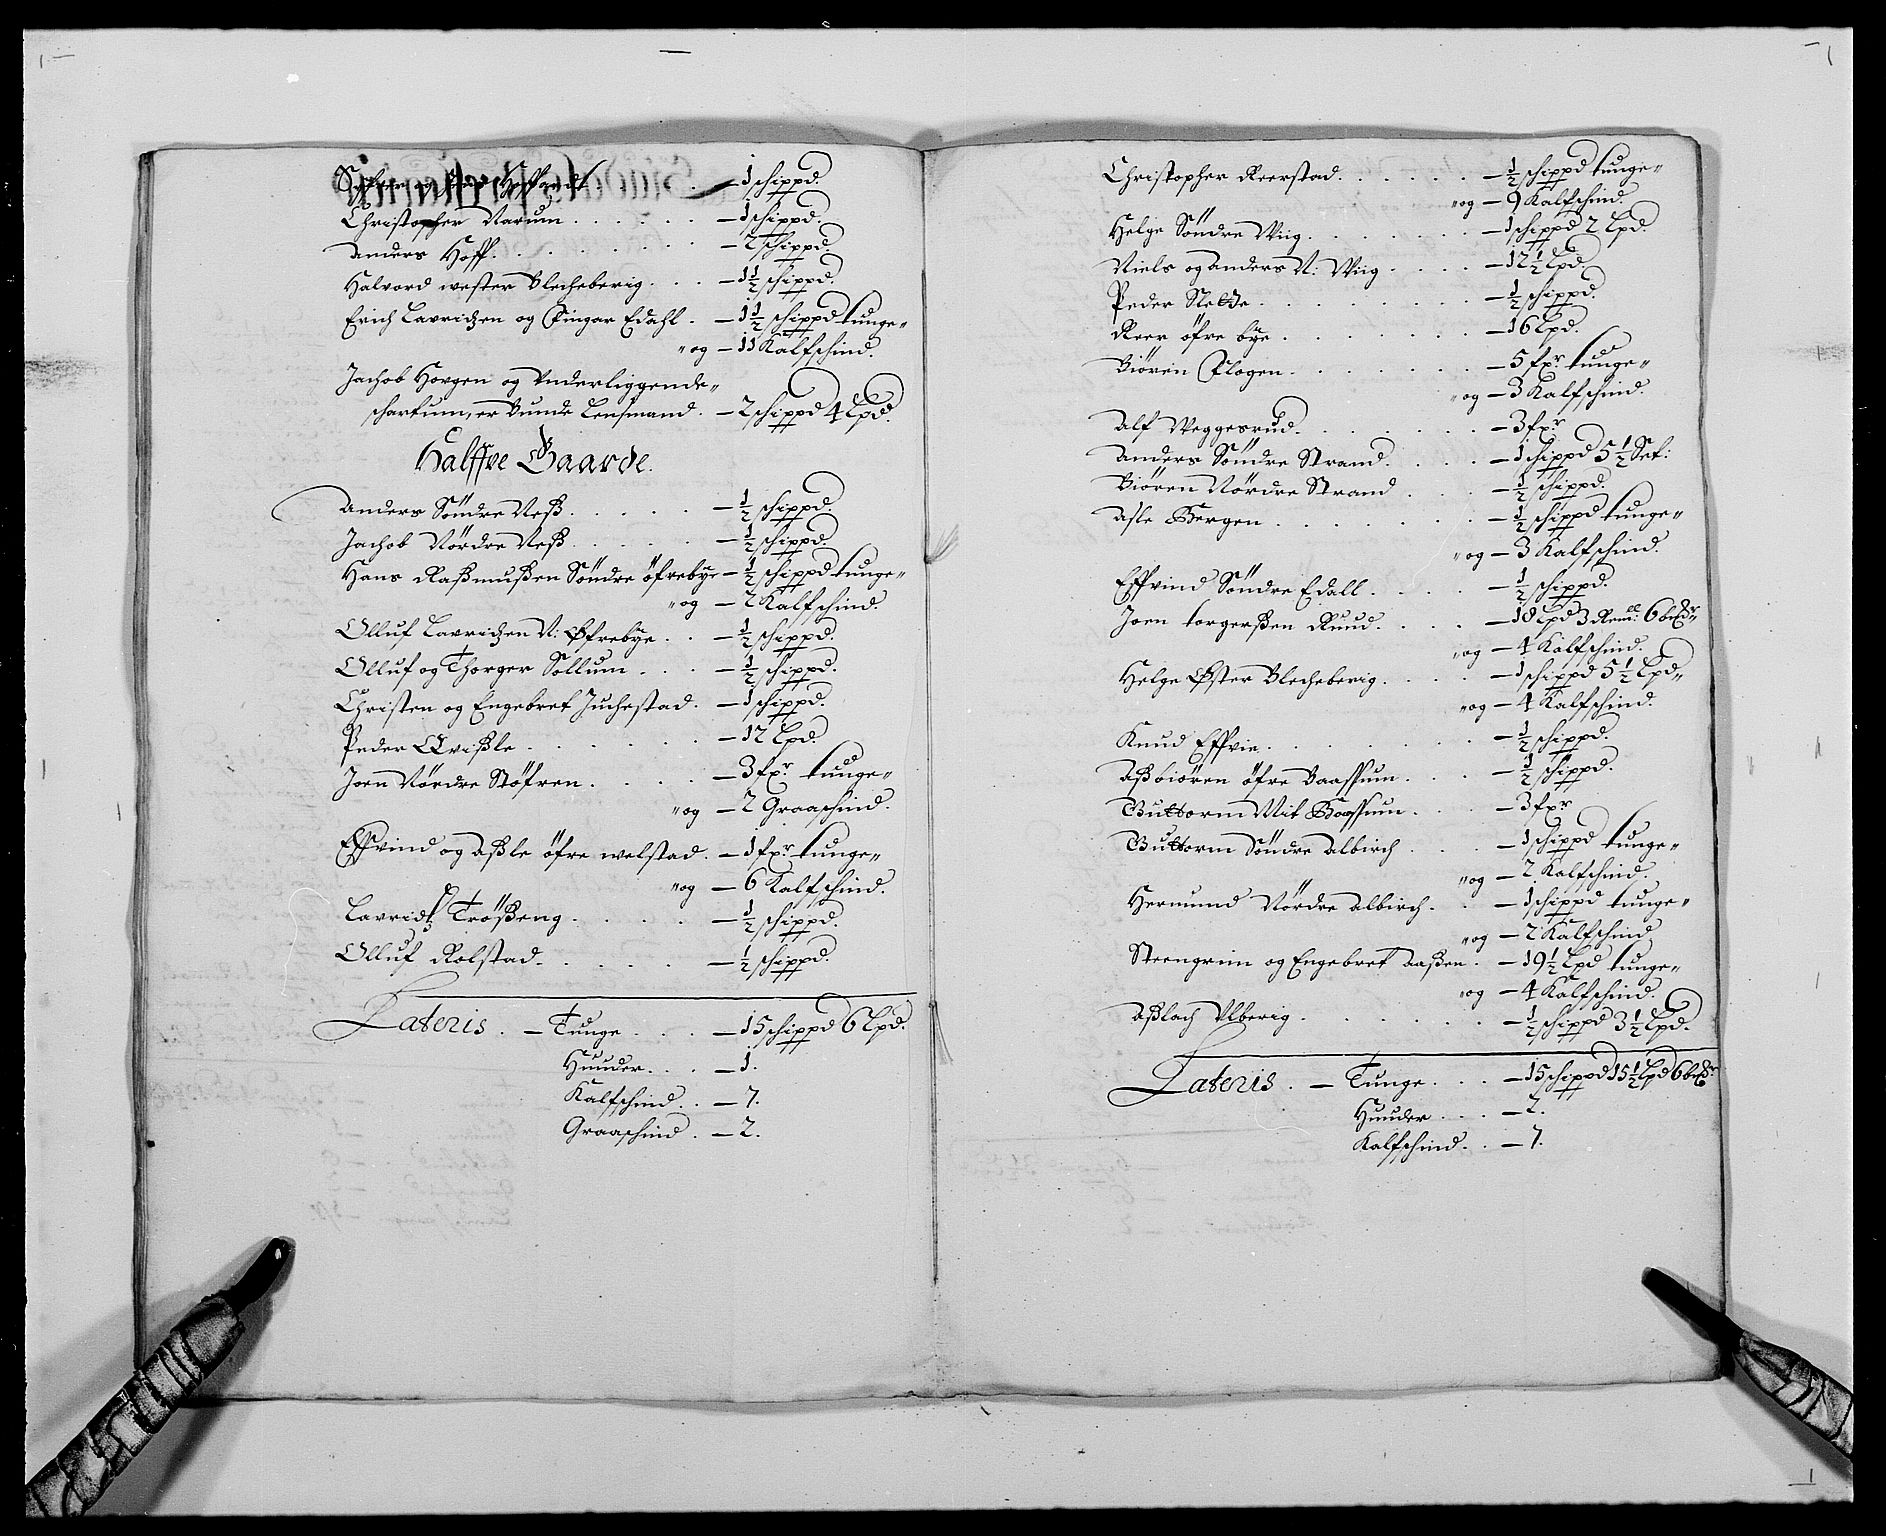 1 schippd
Christopher Narum . . . . . — 1 schippd.
Anders Hoff . . . . . . — 2 schippd.
Halvord wester Blecheberig . . . — 1½ schippd.
Erich Lavridzen og Fingar Edahl . — 1½ schippd tunge„
„og — 11 Kalfschind.
Jachob Horgen og Underliggende„
schartum, er Bunde Lensmand . — 2 schippd 4 Lpd.
Halffve Gaarde.
Anders Søndre Neß . . . . . — ½ schippd.
Jachob Nørdre Neß . . . . . — ½ schippd.
Hans Raßmußen Søndre öfrebye — ½ schippd tunge„
„og — 2 Kalfschind.
Olluf Lavridzen N: Øfrebye . . — ½ schippd.
Olluf og Thorger Sollum . . . — ½ schippd.
Christen og Engebret Juchestad . — 1 schippd.
Peder Qvißle . . . . . . — 12 Lpd.
Joen Nørdre Støfren . . . . — 3 fxr. tunge„
„og — 2 Graaschind.
Effvind og Aßle öfre welstad . — 1 fxr. tunge„
„og — 6 Kalfschind.
Lavridz Trößeng . . . . . — ½ schippd.
Olluf Rolstad . . . . . — ½ schippd.
Lateris . — Tunge . . . . — 15 schippd 6 Lpd.
Huuder . . . — 1.
Kalfschind . . — 7.
Graaschind . — 2.
Christopher Reerstad . . . . . . — ½ schippd tunge„
„og — 9 Kalfschind.
Helge Søndre Wiig . . . . . . — 1 schippd 2 Lpd.
Niels og Anders N: Wiig . . . . — 12½ Lpd.
Peder . . . . . . . . — ½ schippd.
Reer öfre bye . . . . . . . — 16 Lpd.
Biören Flogen . . . . . . . — 5 fxr. tunge„
„og — 3 Kalfschind.
Alf Weggesrud . . . . . . . — 3 fxr
Anders Søndre Strand . . . . — 1 schippd 5½ Set:
Biören Nørdre Strand . . . . — ½ schippd.
Asle Bergen . . . . . . . — ½ schippd tunge„
„og — 3 Kalfschind.
Effvind Søndre Edall . . . . — ½ schippd.
Joen torgerßen Ruud . . . . — 18 Lpd 3 Reml. 6
„og — 4 Kalfschind.
Helge Øster Blecheberig . . . . — 1 schippd 5½ Lpd„
„og — 4 Kalfschind.
Knud Effvie . . . . . . . — ½ schippd.
Aßbiören öfre Baaßum . . . . — ½ schippd.
Guttorm Mit Baaßum . . . . — 3 fxr
Guttorm Søndre Albirch . . . . — 1 schippd tunge„
„og — 2 Kalfschind.
Hermund Nørdre Albirch . . . — 1 schippd tunge„
„og — 2 Kalfschind
Steengrim og Engebret Aaßen . — 19½ Lpd tunge„
„og — 4 Kalfschind.
Aßlach Ulberig . . . . . . — ½ schippd 3½ Lpd.
Lateris . — Tunge . . . — 15 schippd 15½ Lpd 6
Huuder . . . — 2.
Kalfschind . . — 7.